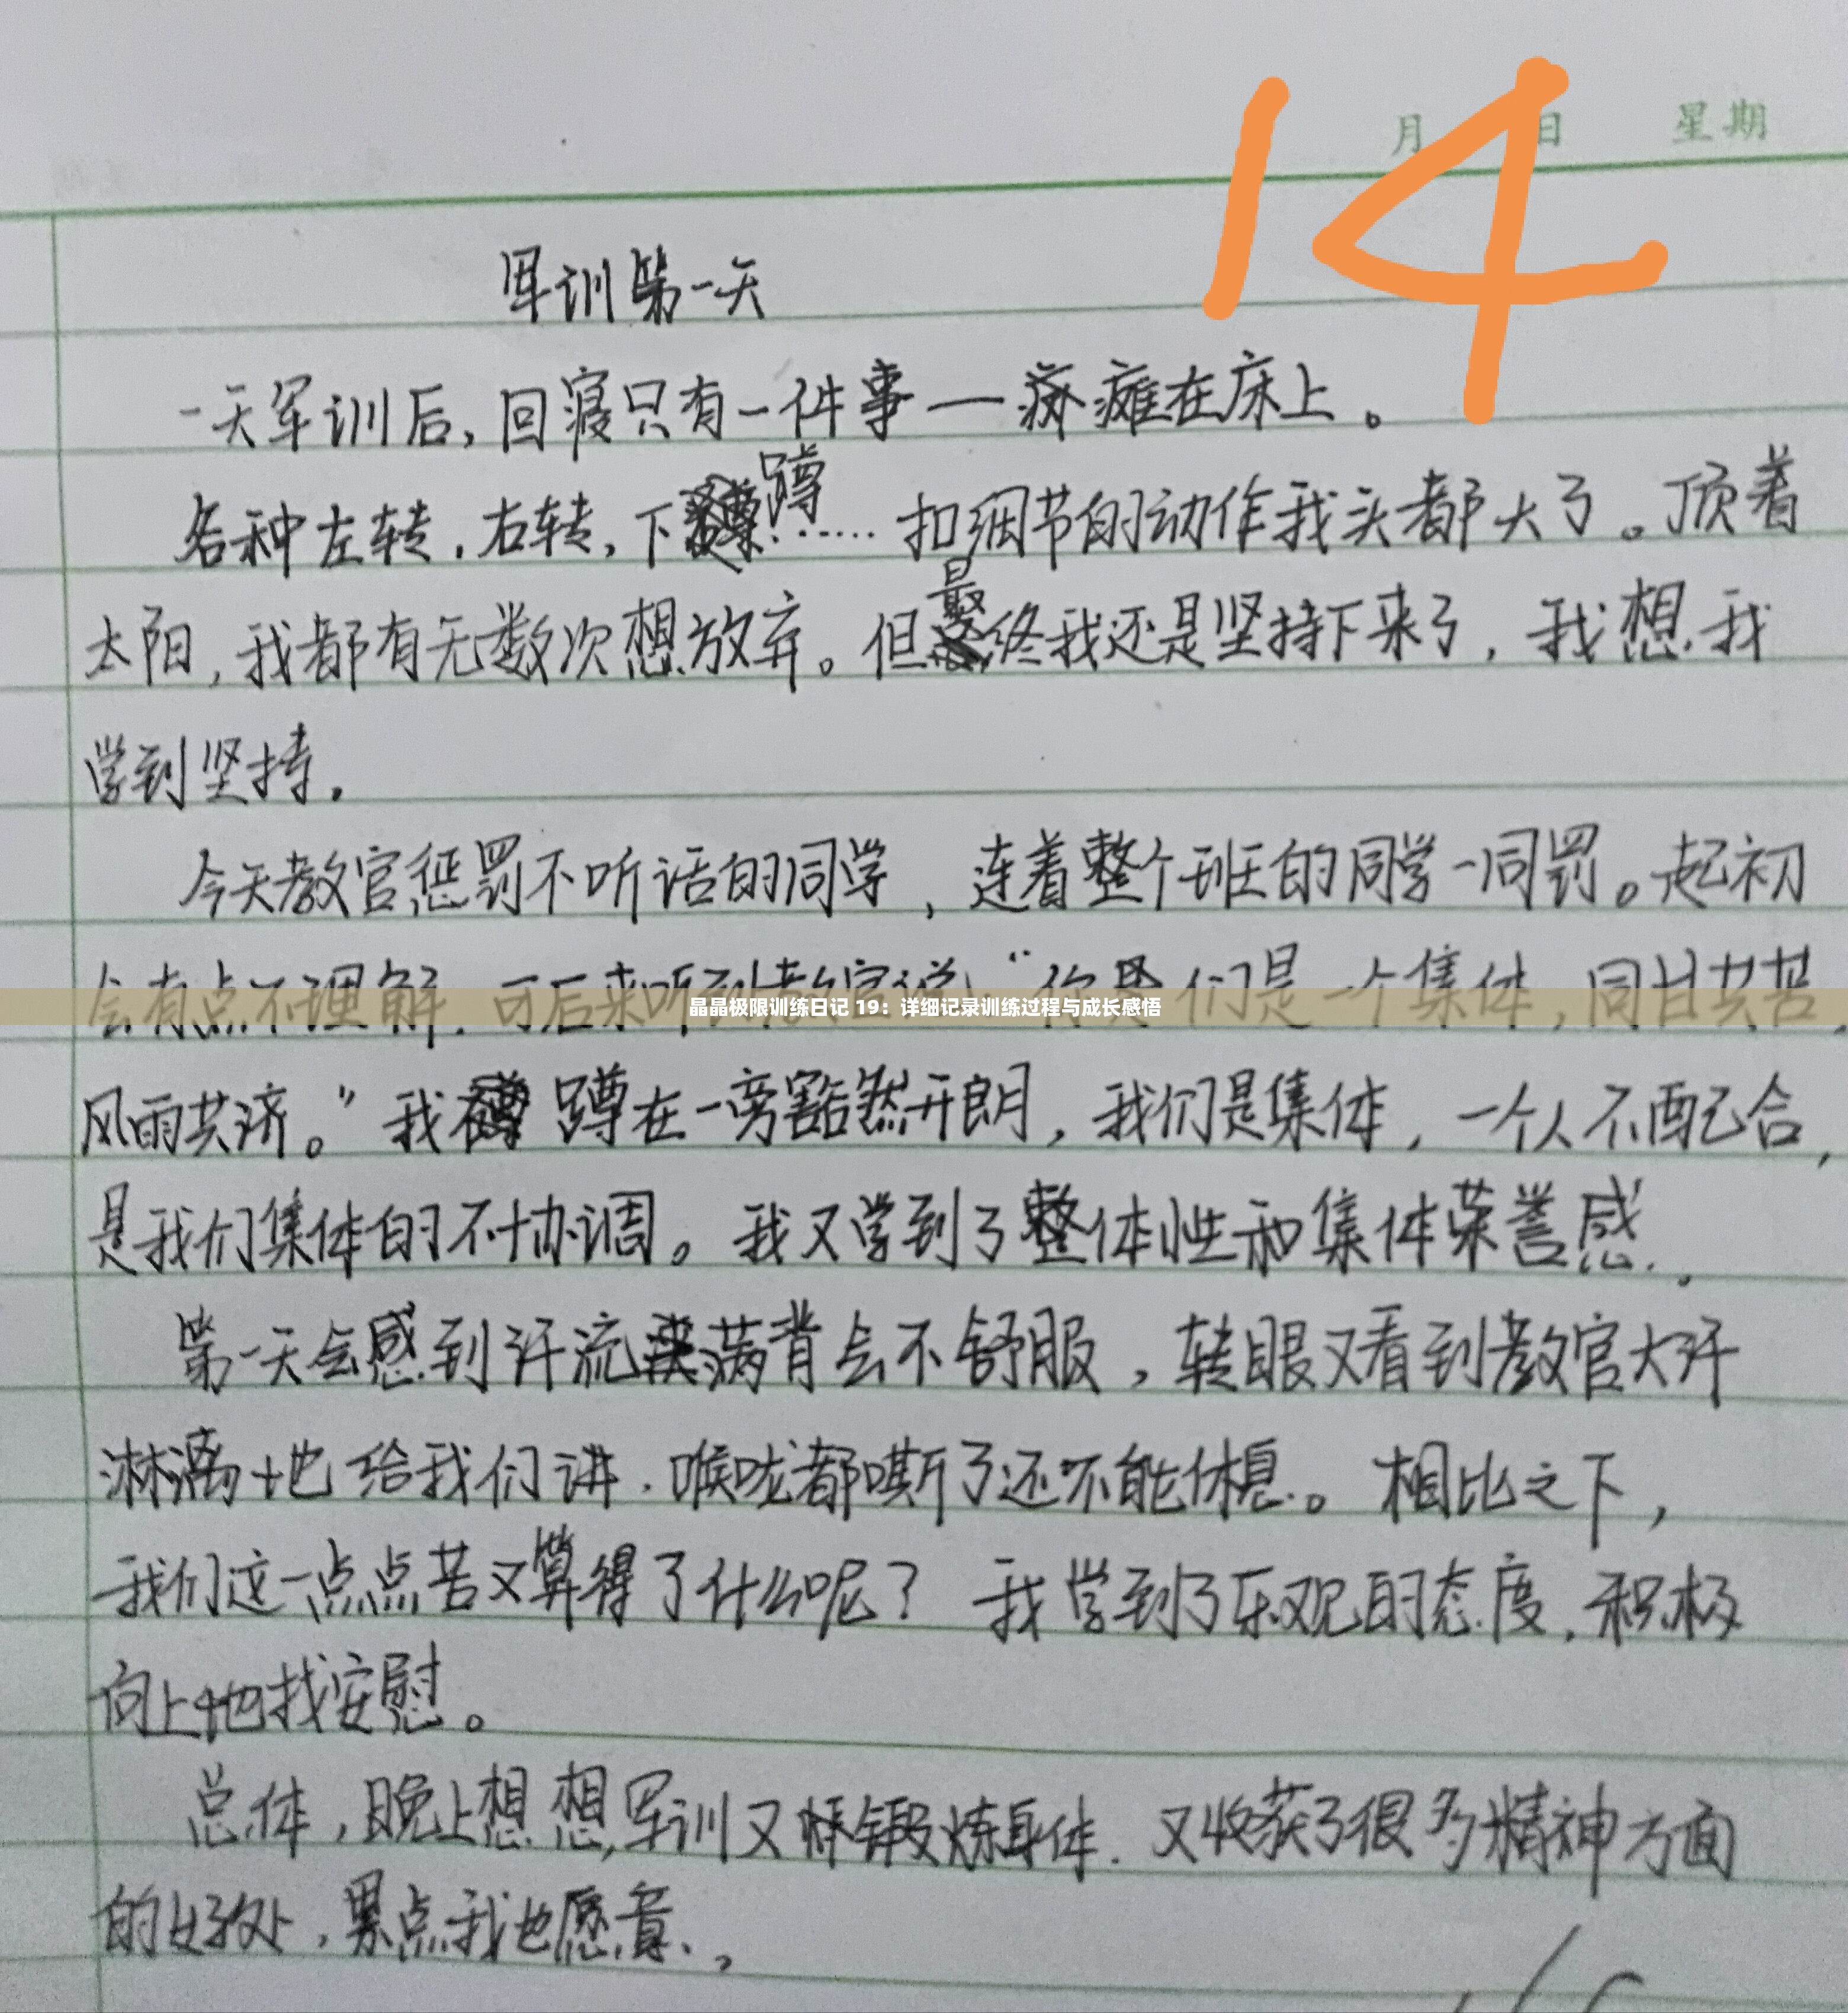 月 日 星期
14
军训第一天
一天军训后，回寝只有一件事—瘫在床上。
各种左转，右转，下蹲……扣细节的动作我头都大了。顶着
太阳，我都有无数次想放弃。但最终我还是坚持下来了，我想，我
学到坚持。
今天教官惩罚不听话的同学，连着整个班的同学一同罚。起初
会有点不理解，可后来听到教官说：“你们是一个集体，同甘共苦，
晶晶极限训练日记 19：详细记录训练过程与成长感悟
风雨共济。”我蹲在一旁豁然开朗，我们是集体，一个人不配合，
是我们集体的不协调。我又学到了整体性和集体荣誉感。
第一天会感到汗流满背会不舒服，转眼又看到教官大汗
淋漓地给我们讲，喉咙都嘶了还不能休息。相比之下，
我们这一点点苦又算得了什么呢？我学到了乐观的态度，积极
向上地找安慰。
总体，晚上想想，军训又锻炼身体，又收获了很多精神方面
的好处，累点我也愿意。